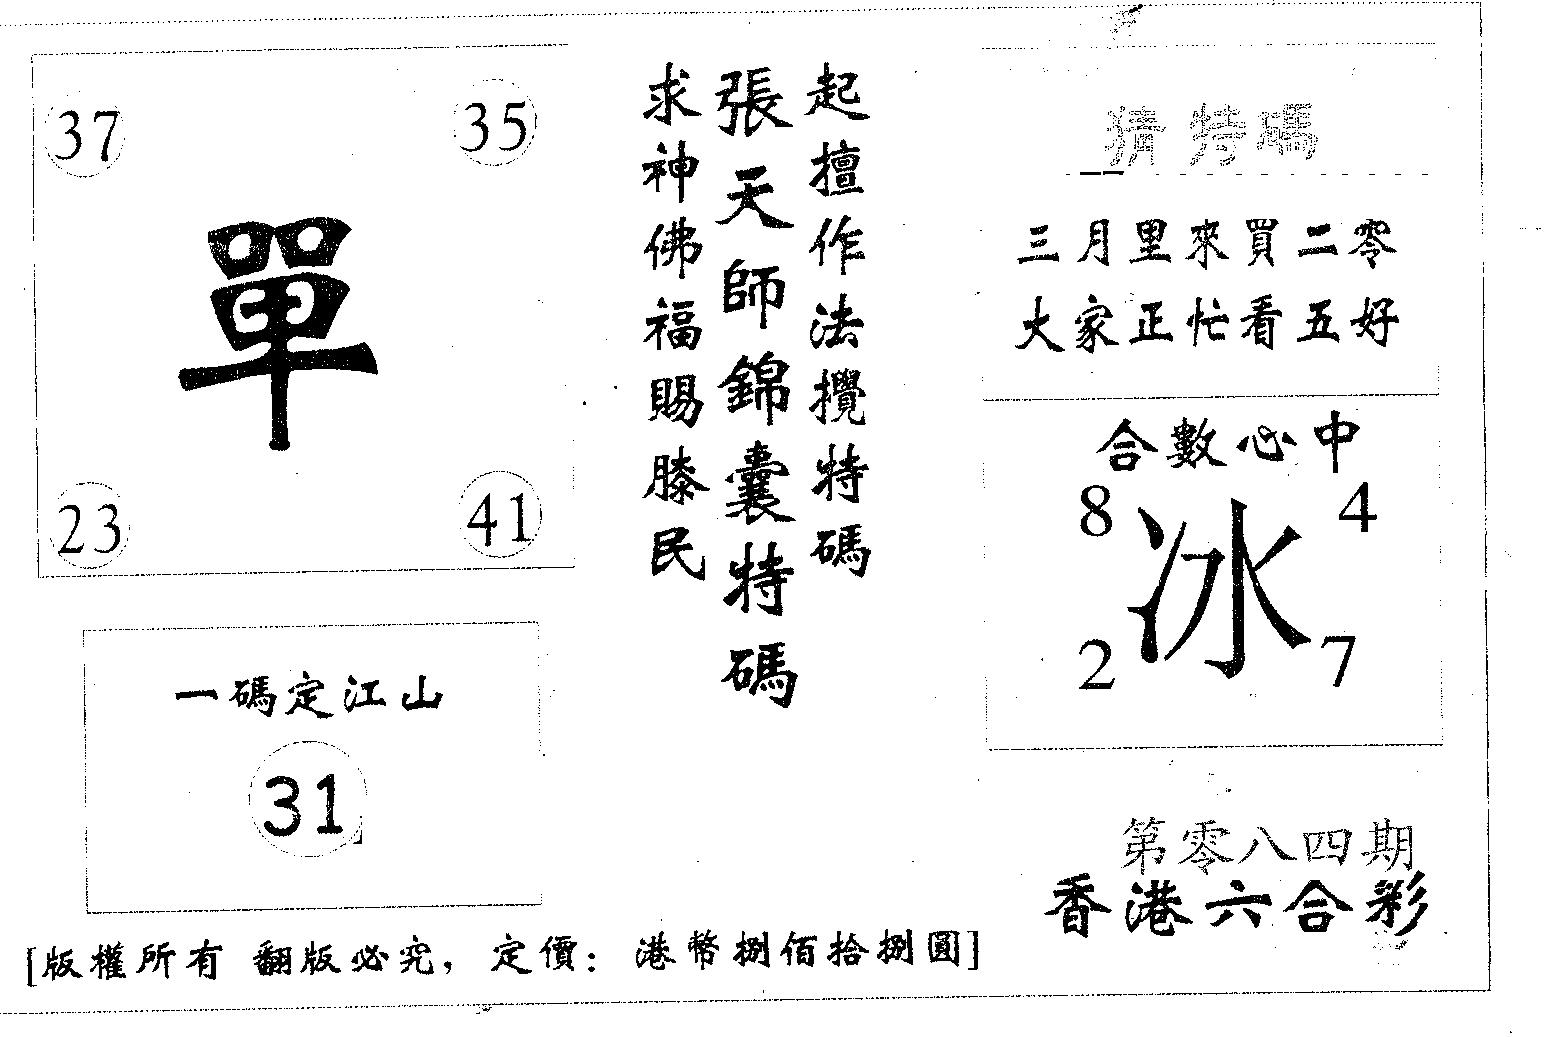 37 35
單
23 41
一碼定江山
31
起擅作法攪特碼
張天師錦囊特碼
求神佛福賜膝民
猜特碼
三月里來買二零
大家正忙看五好
合數心中
8 4
冰
2 7
第零八四期
香港六合彩
[版權所有 翻版必究，定價：港幣捌佰拾捌圓]